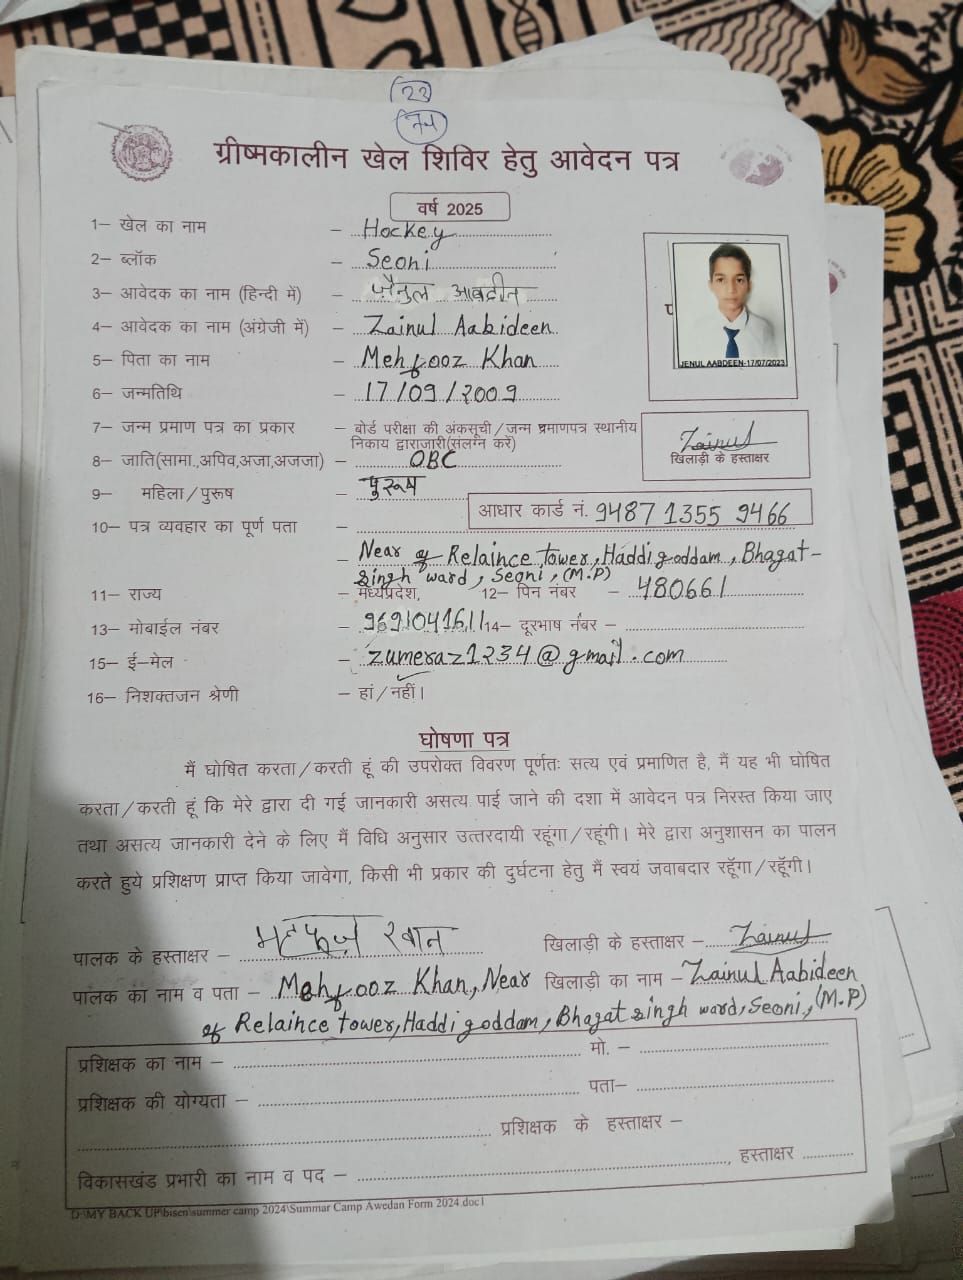 22
74
ग्रीष्मकालीन खेल शिविर हेतु आवेदन पत्र
वर्ष 2025
1– खेल का नाम – Hockey
2– ब्लॉक – Seoni
3– आवेदक का नाम (हिन्दी में) – जैनुल आबदीन
4– आवेदक का नाम (अंग्रेजी में) – Zainul Aabideen
5– पिता का नाम – Mehfooz Khan
JENUL AABDEEN-17/07/2023
6– जन्मतिथि – 17/09/2009
7– जन्म प्रमाण पत्र का प्रकार – बोर्ड परीक्षा की अंकसूची/जन्म प्रमाणपत्र स्थानीय
निकाय द्वाराजारी(संलग्न करें)
Zainul
खिलाड़ी के हस्ताक्षर
8– जाति(सामा.,अपिव,अजा,अजजा) – OBC
9– महिला/पुरूष – पुरूष
आधार कार्ड नं. 9487 1355 9466
10– पत्र व्यवहार का पूर्ण पता –
– Near of Relaince tower, Haddi goddam, Bhagat-
singh ward, Seoni, (M.P)
11– राज्य – मध्यप्रदेश, 12– पिन नंबर – 480661
13– मोबाईल नंबर – 9691041611 14– दूरभाष नंबर –
15– ई–मेल – zumeraz1234@gmail.com
16– निशक्तजन श्रेणी – हां/नहीं।
घोषणा पत्र
मैं घोषित करता/करती हूं की उपरोक्त विवरण पूर्णतः सत्य एवं प्रमाणित है, मैं यह भी घोषित
करता/करती हूं कि मेरे द्वारा दी गई जानकारी असत्य पाई जाने की दशा में आवेदन पत्र निरस्त किया जाए
तथा असत्य जानकारी देने के लिए मैं विधि अनुसार उत्तरदायी रहूंगा/रहूंगी। मेरे द्वारा अनुशासन का पालन
करते हुये प्रशिक्षण प्राप्त किया जावेगा, किसी भी प्रकार की दुर्घटना हेतु मैं स्वयं जवाबदार रहूँगा/रहूँगी।
पालक के हस्ताक्षर – महफूज खान खिलाड़ी के हस्ताक्षर – Zainul
पालक का नाम व पता – Mehfooz Khan, Near खिलाड़ी का नाम – Zainul Aabideen
of Relaince tower, Haddi goddam, Bhagat singh ward, Seoni, (M.P)
प्रशिक्षक का नाम – मो. –
प्रशिक्षक की योग्यता – पता–
प्रशिक्षक के हस्ताक्षर –
विकासखंड प्रभारी का नाम व पद – , हस्ताक्षर
D:\MY BACK UP\bisen\summer camp 2024\Summar Camp Awedan Form 2024.doc1